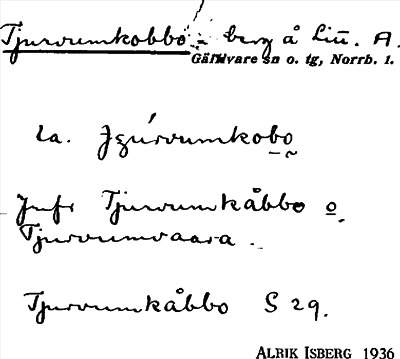 Tjurvumkobbo - berg å Lin. A.
Gällivare sn o. tg, Norrb. l.
la.
Jufr Tjurvumkåbbo o.
Tjurvumvaara.
Tjurvumkåbbo S 29.
ALRIK ISBERG 1936